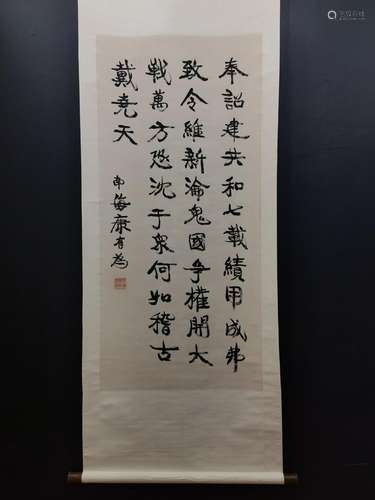 奉詔建共和七載績用成弗
致令維新淪鬼國爭權開大
戰萬方恐沈于衆何如稽古
戴堯天
南海康有為